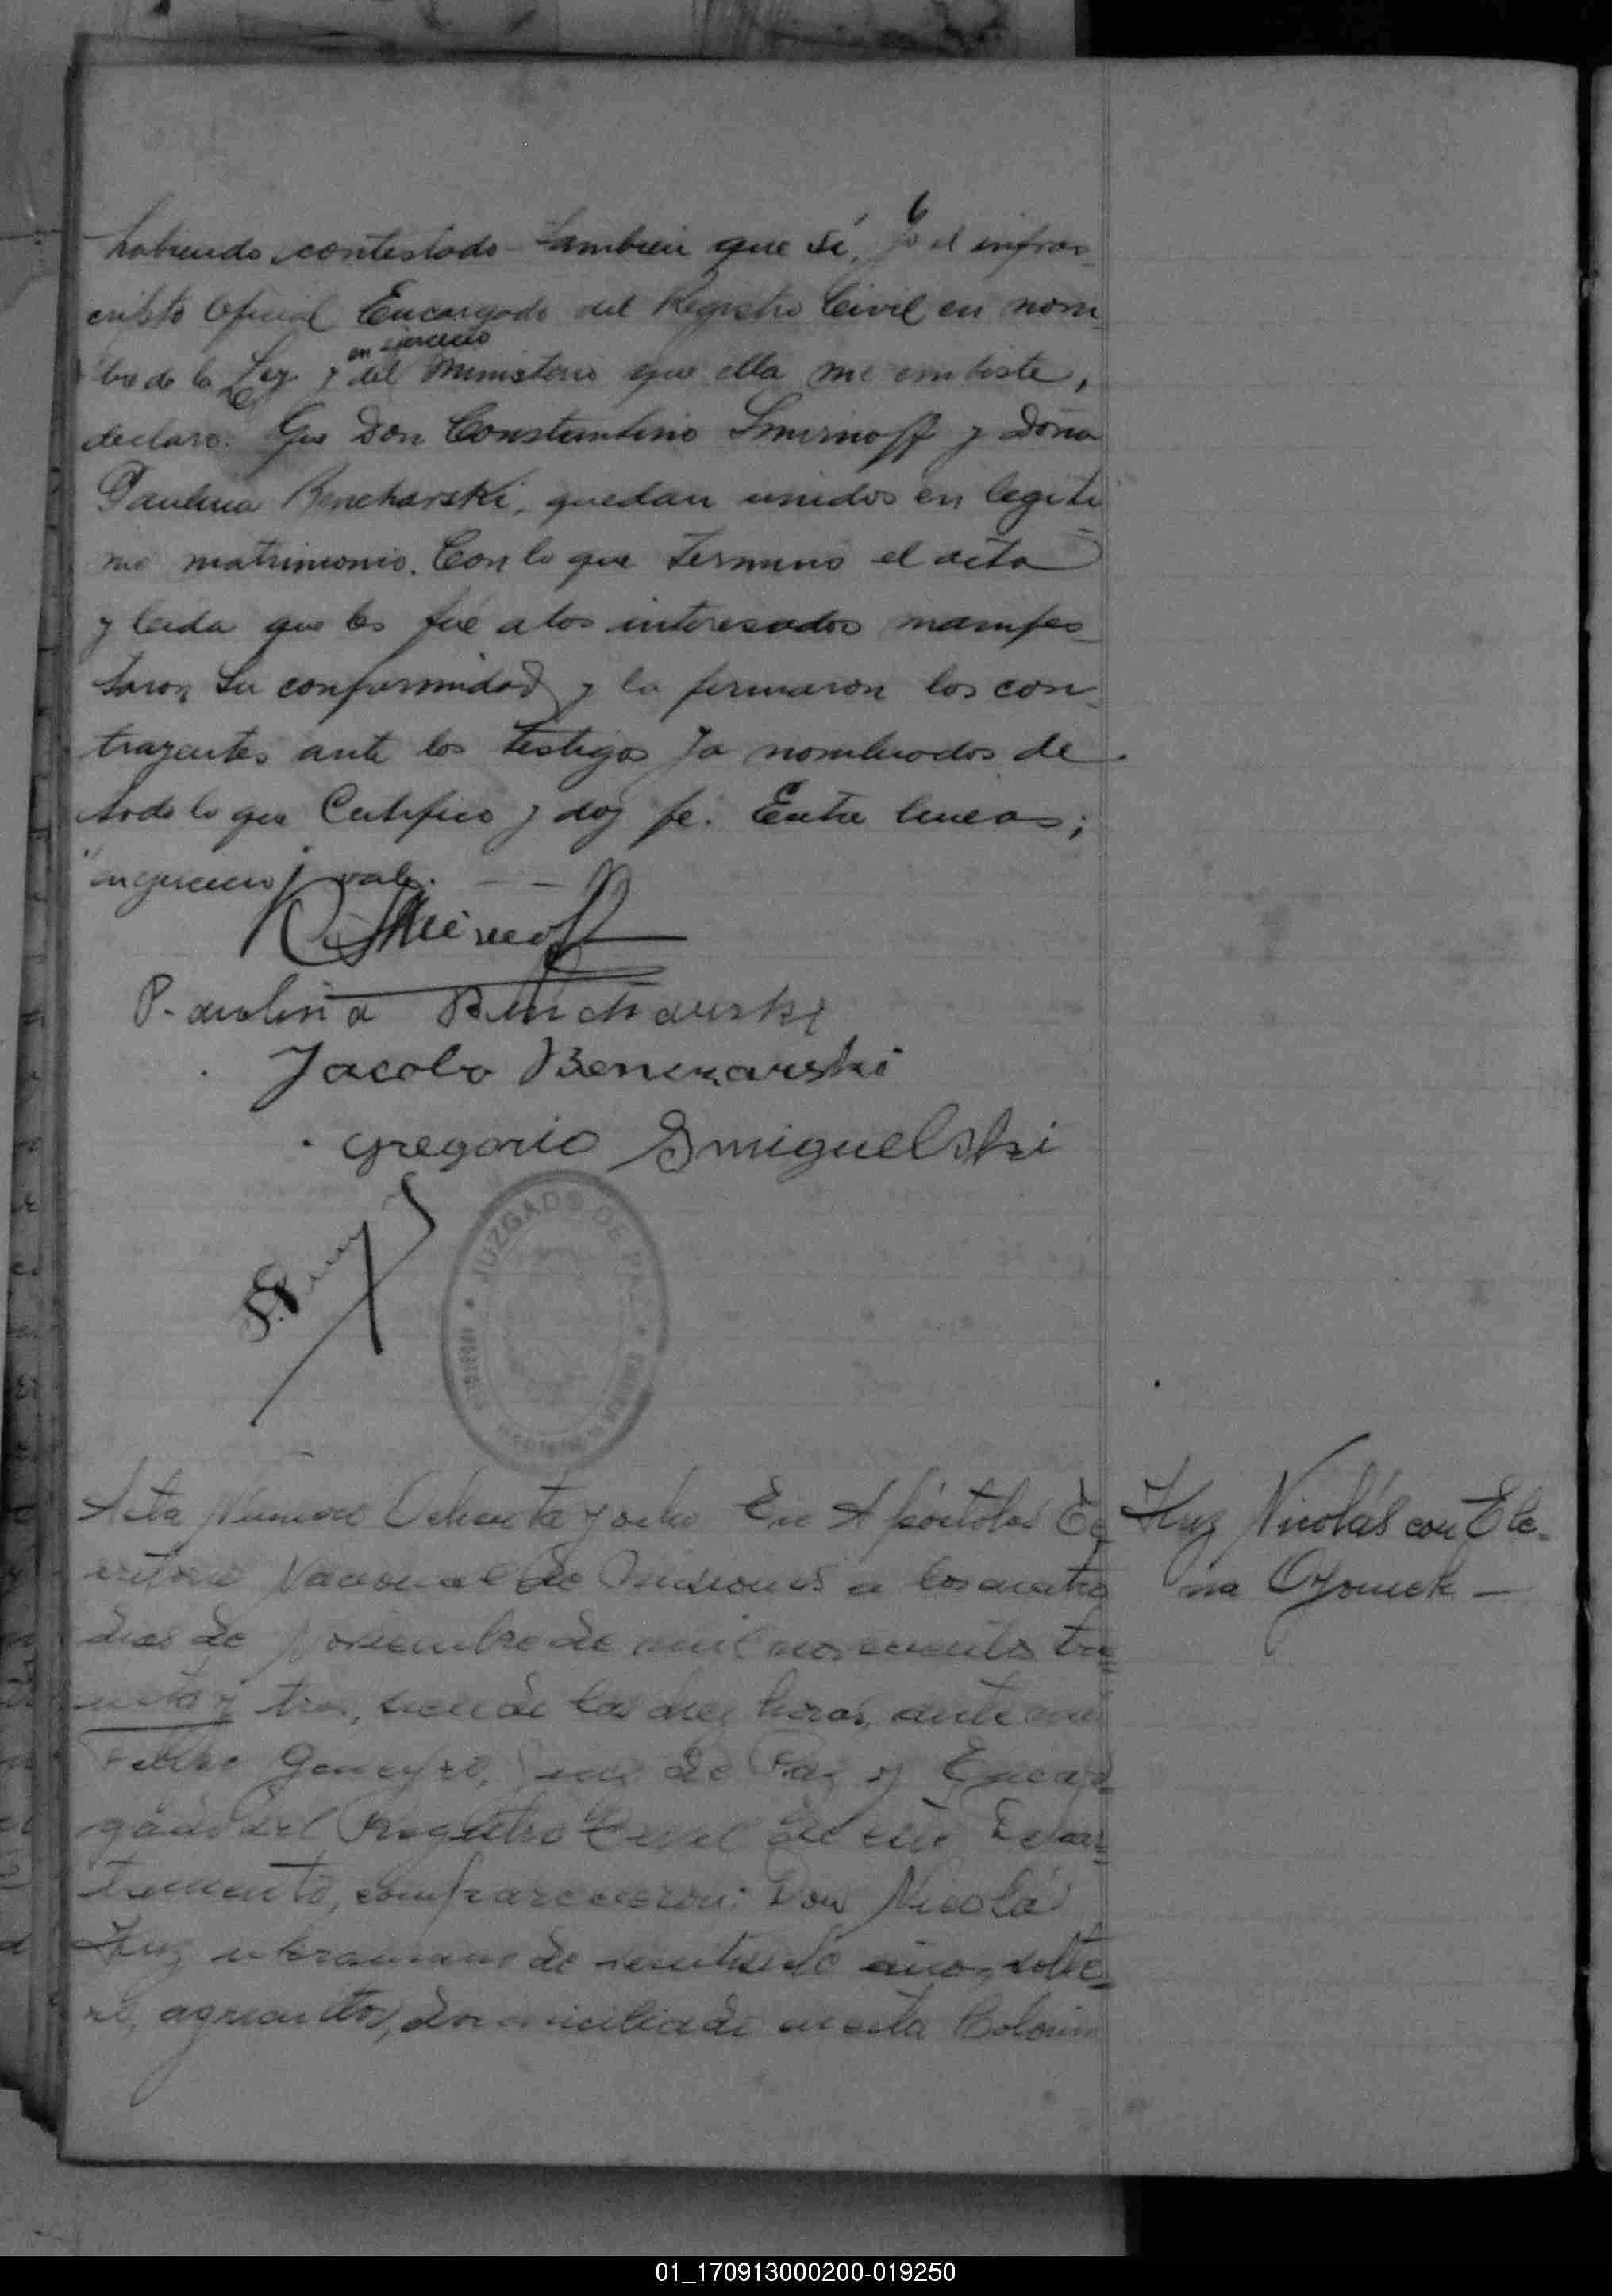 habiendo contestado tambien que sí, Yo el infras-
crito Oficial Encargado del Registro Civil en nom-
en ejercicio
bre de la Ley y del Ministerio que ella me embiste,
declaro: Que Don Constantino Smirnoff y Doña
Paulina Bencharski, quedan unidos en legiti
mo matrimonio. Con lo que termino el acta
y leida que les fué a los interesados manifes-
taron su conformidad y la firmaron los con-
trayentes ante los testigos ya nombrados de
todo lo que Certifico y doy fe. Entre lineas;
"en ejercicio" vale.
Paulina Bencharski
Jacobo Benczarski
Gregorio Smiguelski
JUZGADO DE PAZ
Acta Número Ochenta y ocho En Apóstoles Te
rritorio Nacional de Misiones a los cuatro
dias de Noviembre de mil novecientos tre
inta y tres, siendo las diez horas, ante mi
Juez de Paz y Encar
gado del Registro Civil de este Depar
tamento, comparecieron: Don Nicolás
Huz ukraniano de veintisiete años, solte
ro, agricultor, domiciliado en esta Colonia
Huz Nicolás con Ele-
na Ozomek —
01_170913000200-019250